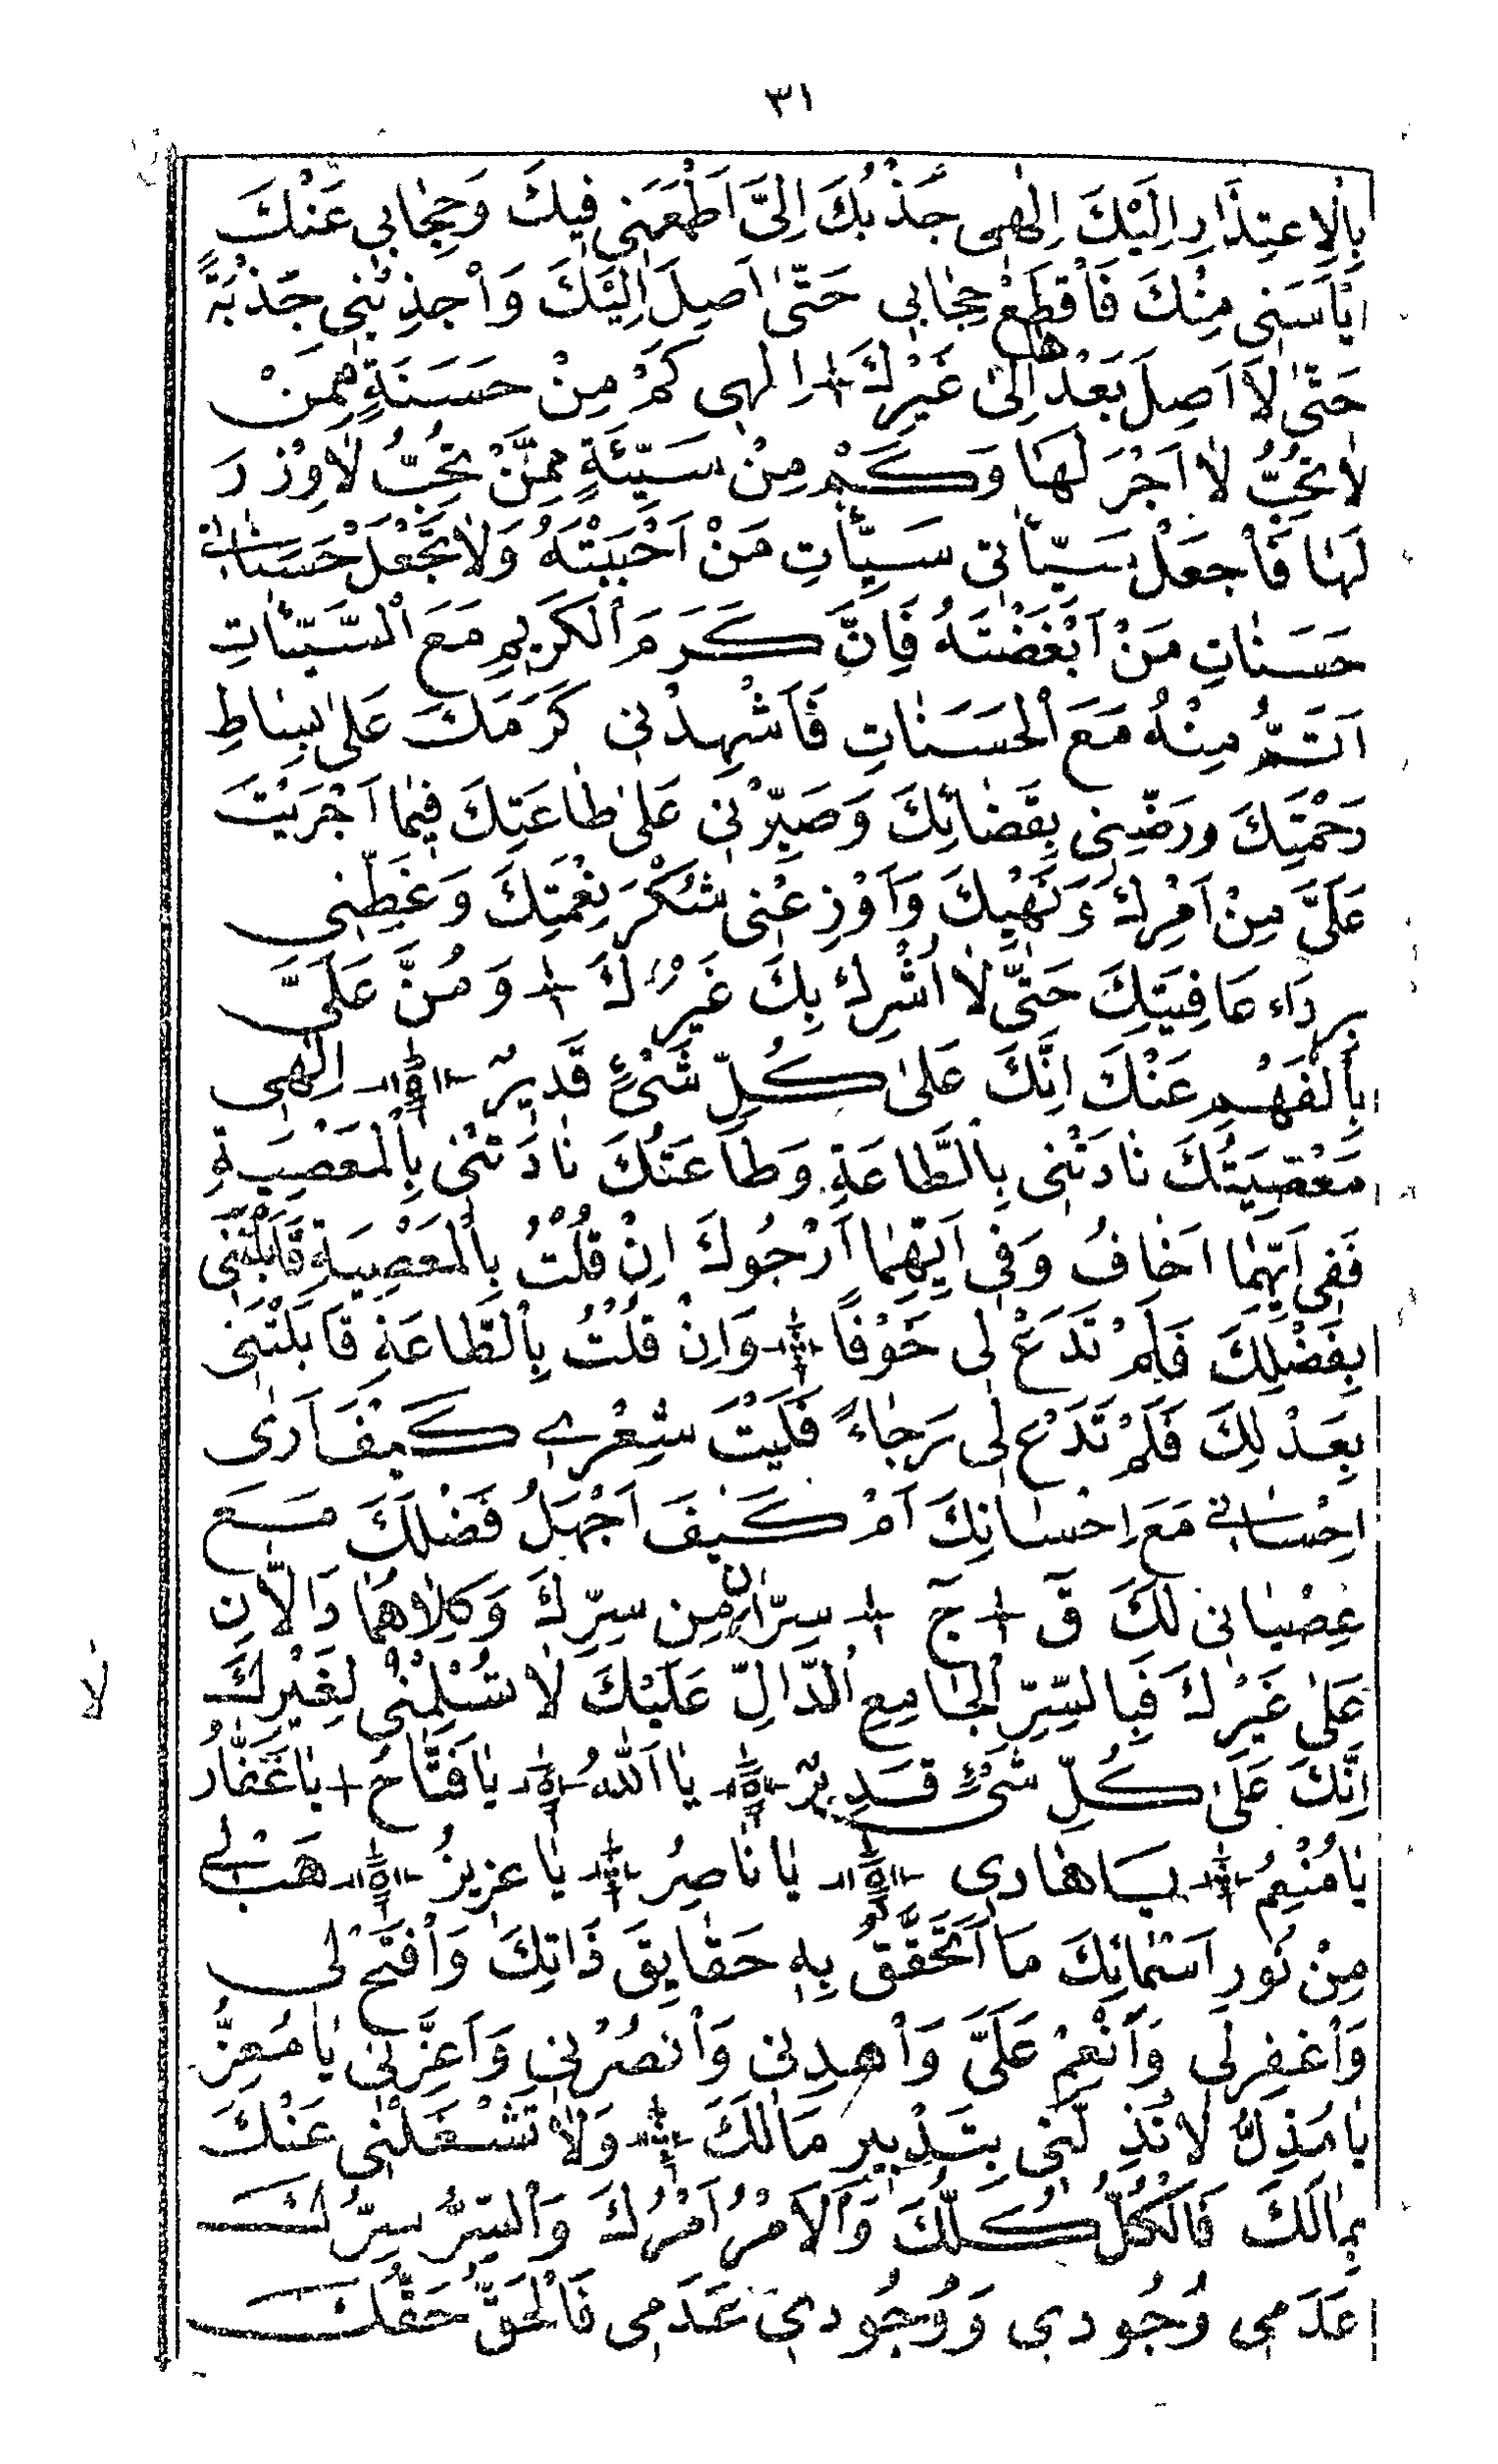 ٣١
بِالْاِعْتِذَارِ اِلَيْكَ اِلٰهِى جَذْبُكَ اِلَىَّ اَطْمَعَنِى فِيكَ وَحِجٰابِى عَنْكَ
اَيْاَسَنِى مِنْكَ فَاَقْطَعْ حِجٰابِى حَتّٰى اَصِلَ اِلَيْكَ وَاْجْذِبْنِى جَذْبَةً
حَتّٰى لاَ اَصِلَ بَعْدَهَا اِلىٰ غَيْرِكَ اِلٰهِى كَمْ مِنْ حَسَنَةٍ مِمَنْ
لاٰتُحِبُّ لاٰ اَجْرَ لَهٰا وَكَمْ مِنْ سَيِّئَةٍ مِمَّنْ تُحِبُّ لاٰوِزْرَ
لَهٰا فَاْجْعَلْ سَيِّاٰتِى سَيِّأٰتِ مَنْ اَحْبَبْتَهُ وَلاٰتَجْعَلْ حَسَنٰاتِى
حَسَنٰاتِ مَنْ اَبْغَضْتَهُ فَاِنَّ كَرَمَ اْلكَرِيمِ مَعَ اْلسَّيِّئٰاتِ
اَتَمُّ مِنْهُ مَعَ اْلحَسَنٰاتِ فَاَشْهِدْنِى كَرَمَكَ عَلىٰ بِسٰاطِ
رَحْمَتِكَ ورَضِّنِى بِقَضٰائِكَ وَصَبِّرْنِى عَلىٰ طٰاعَتِكَ فِيمٰا اَجْرَيْتَ
عَلَىَّ مِنْ اَمْرِكَ وَنَهْيِكَ وَاَوْزِعْنِى شُكْرَ نِعْمَتِكَ وَغَطِّنِى
بِرِدَاء عَافِيَتِكَ حَتّٰى لاٰ اُشْرِكَ بِكَ غَيْرَكَ وَمُنَّ عَلَىَّ
بِاْلفَهْمِ عَنْكَ اِنَّكَ عَلىٰ كُلِّ شَىْءٍ قَدِيرٌ اِلٰهِى
مَعْصِيَتُكَ نٰادَتْنِى بِاْلطَّاعَةِ وَطَاعَتُكَ نٰادَتْنِى بِاْلمَعْصِيَةِ
فَفِى اَيِّهِمٰا اَخٰافُ وَفِى اَيِّهِمٰا اَرْجُوكَ اِنْ قُلْتُ بِاْلمَعْصِيَةِ قَابَلْتَنِى
بِفَضْلِكَ فَلَمْ تَدَعْ لِى خَوْفًا وَاِنْ قُلْتُ بِاْلطَّاعَةِ قَابَلْتَنِى
بِعَدْلِكَ فَلَمْ تَدَعْ لِى رَجٰاءً فَلَيْتَ شِعْرِى كَيْفَ اَرىٰ
اِحْسٰانِى مَعَ اِحْسٰانِكَ اَمْ كَيْفَ اَجْهَلُ فَضْلَكَ مَعَ
عِصْيٰانِى لَكَ قٓ جٓ سِرّٰانِ مِن سِرِّكَ وَكِلاٰهُمٰا دَالاّٰنِ
عَلىٰ غَيْرِكَ فَبِالسِّرِّ اْلجٰامِعِ اْلدّٰالِّ عَلَيْكَ لاٰ تُسْلِمْنِى لِغَيْرِكَ
اِنَّكَ عَلىٰ كُلِّ شَىْءٍ قَدِيرٌ يٰا اَللّٰهُ يٰافَتَّاحُ يٰاغَفّٰارُ
يٰامُنْعِمُ يَاهٰادِى يٰانٰاصِرُ يٰاعَزِيزُ هَبْ لِى
مِنْ نُورِ اَسْمٰائِكَ مَا اَتَحَقَّقُ بِهِ حَقٰايِقَ ذَاتِكَ وَاْفتَحْ لِى
وَاْغْفِرلِى وَاَنْعِمْ عَلَىَّ وَاْهْدِنِى وَاْنْصُرْنِى وَاَعِزَّنِى يٰامُعِزُّ
يٰامُذِلُّ لاٰتُذِلَّنِى بِتَدْبِيرِ مَالَكَ وَلاٰ تَشْغَلْنِى عَنْكَ
بِمٰالَكَ فَالْكُلُّ كُلُّكَ وَاْلاَمْرُ اَمْرُكَ وَاْلسِّرُّ سِرُّكَ
عَدَمِى وُجُودِى وَوُجُودِى عَدَمِى فَالْحَقُّ حَقُّكَ